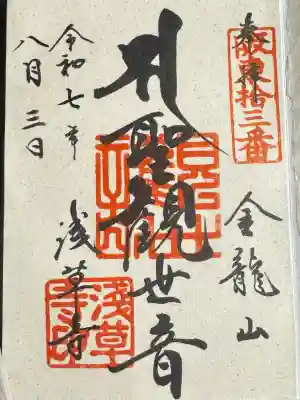 奉拝
坂東拾三番
金龍山
聖観世音
浅草寺
令和七年
八月三日
浅草